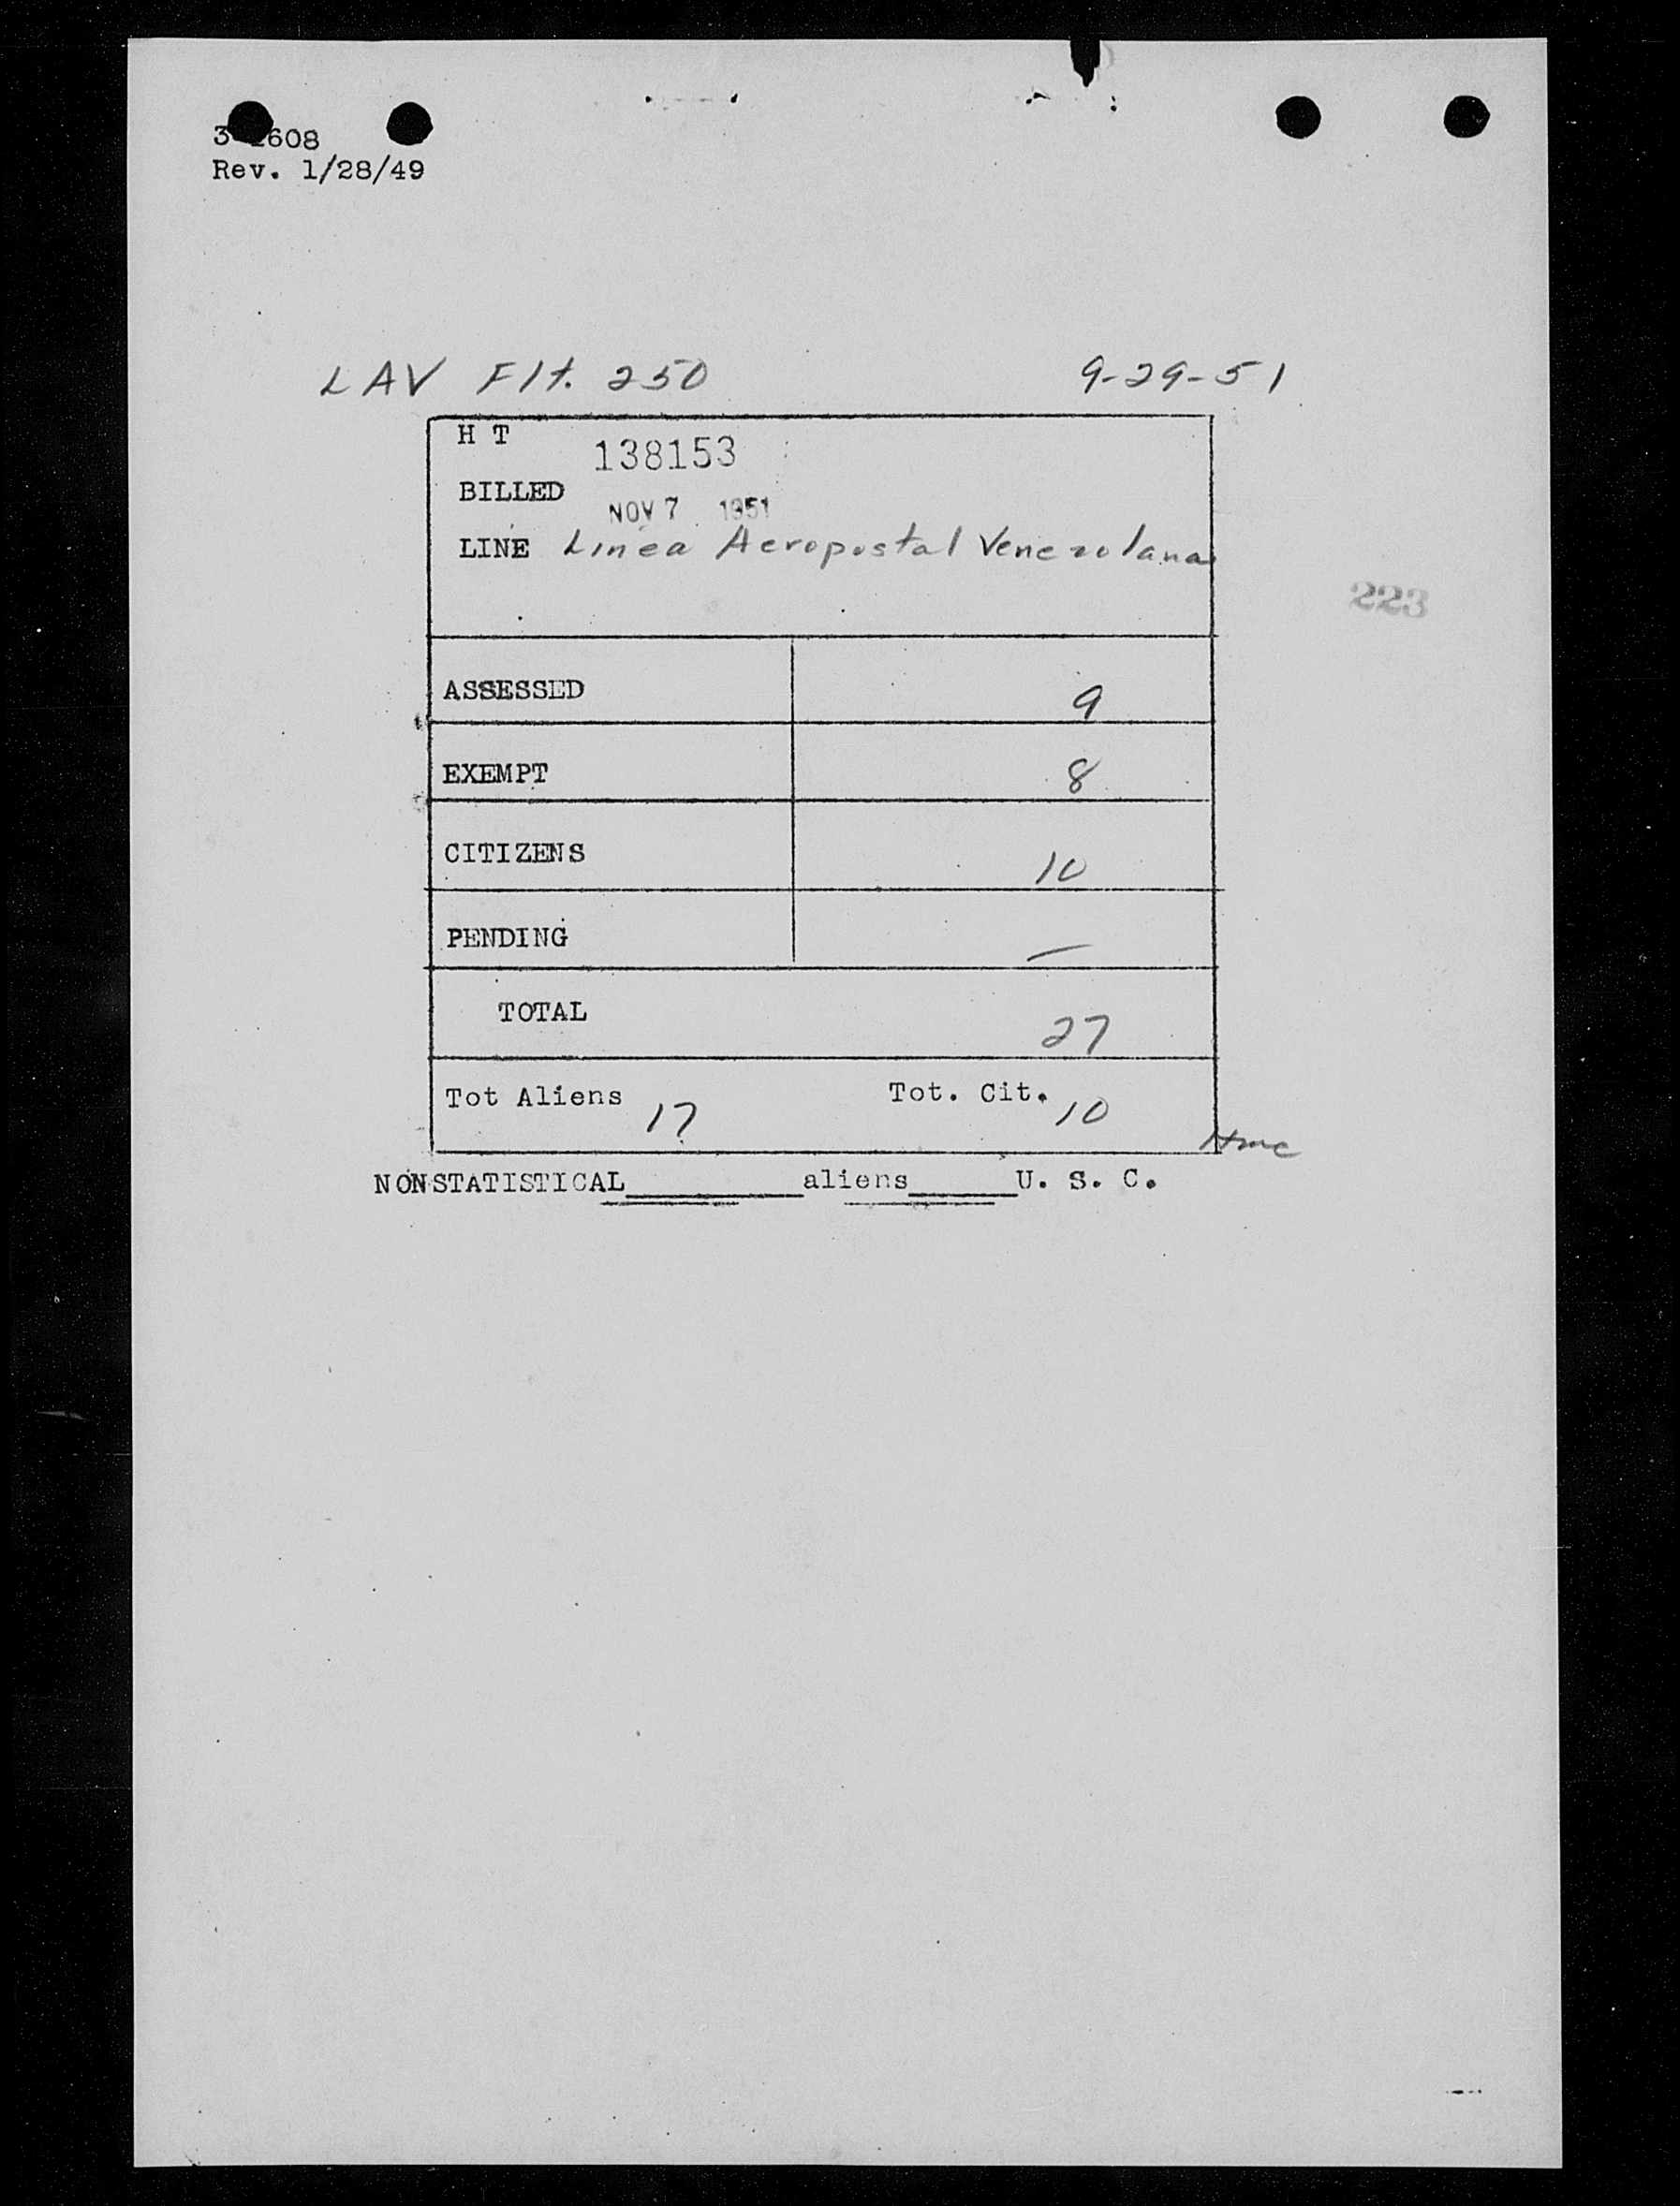 608
Rev. 1/28/49
LAV Flt. 250 9-29-51
H T 138153
BILLED NOV 7 1951
LINE Linea Aeropostal Venezolana
223
ASSESSED 9
EXEMPT 8
CITIZENS 10
PENDING —
TOTAL 27
Tot Aliens 17 Tot. Cit. 10
NONSTATISTICAL__________aliens______U. S. C.